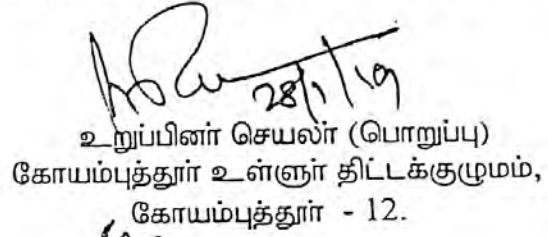 28/1/19
உறுப்பினர் செயலர் (பொறுப்பு)
கோயம்புத்தூர் உள்ளூர் திட்டக்குழுமம்,
கோயம்புத்தூர் - 12.